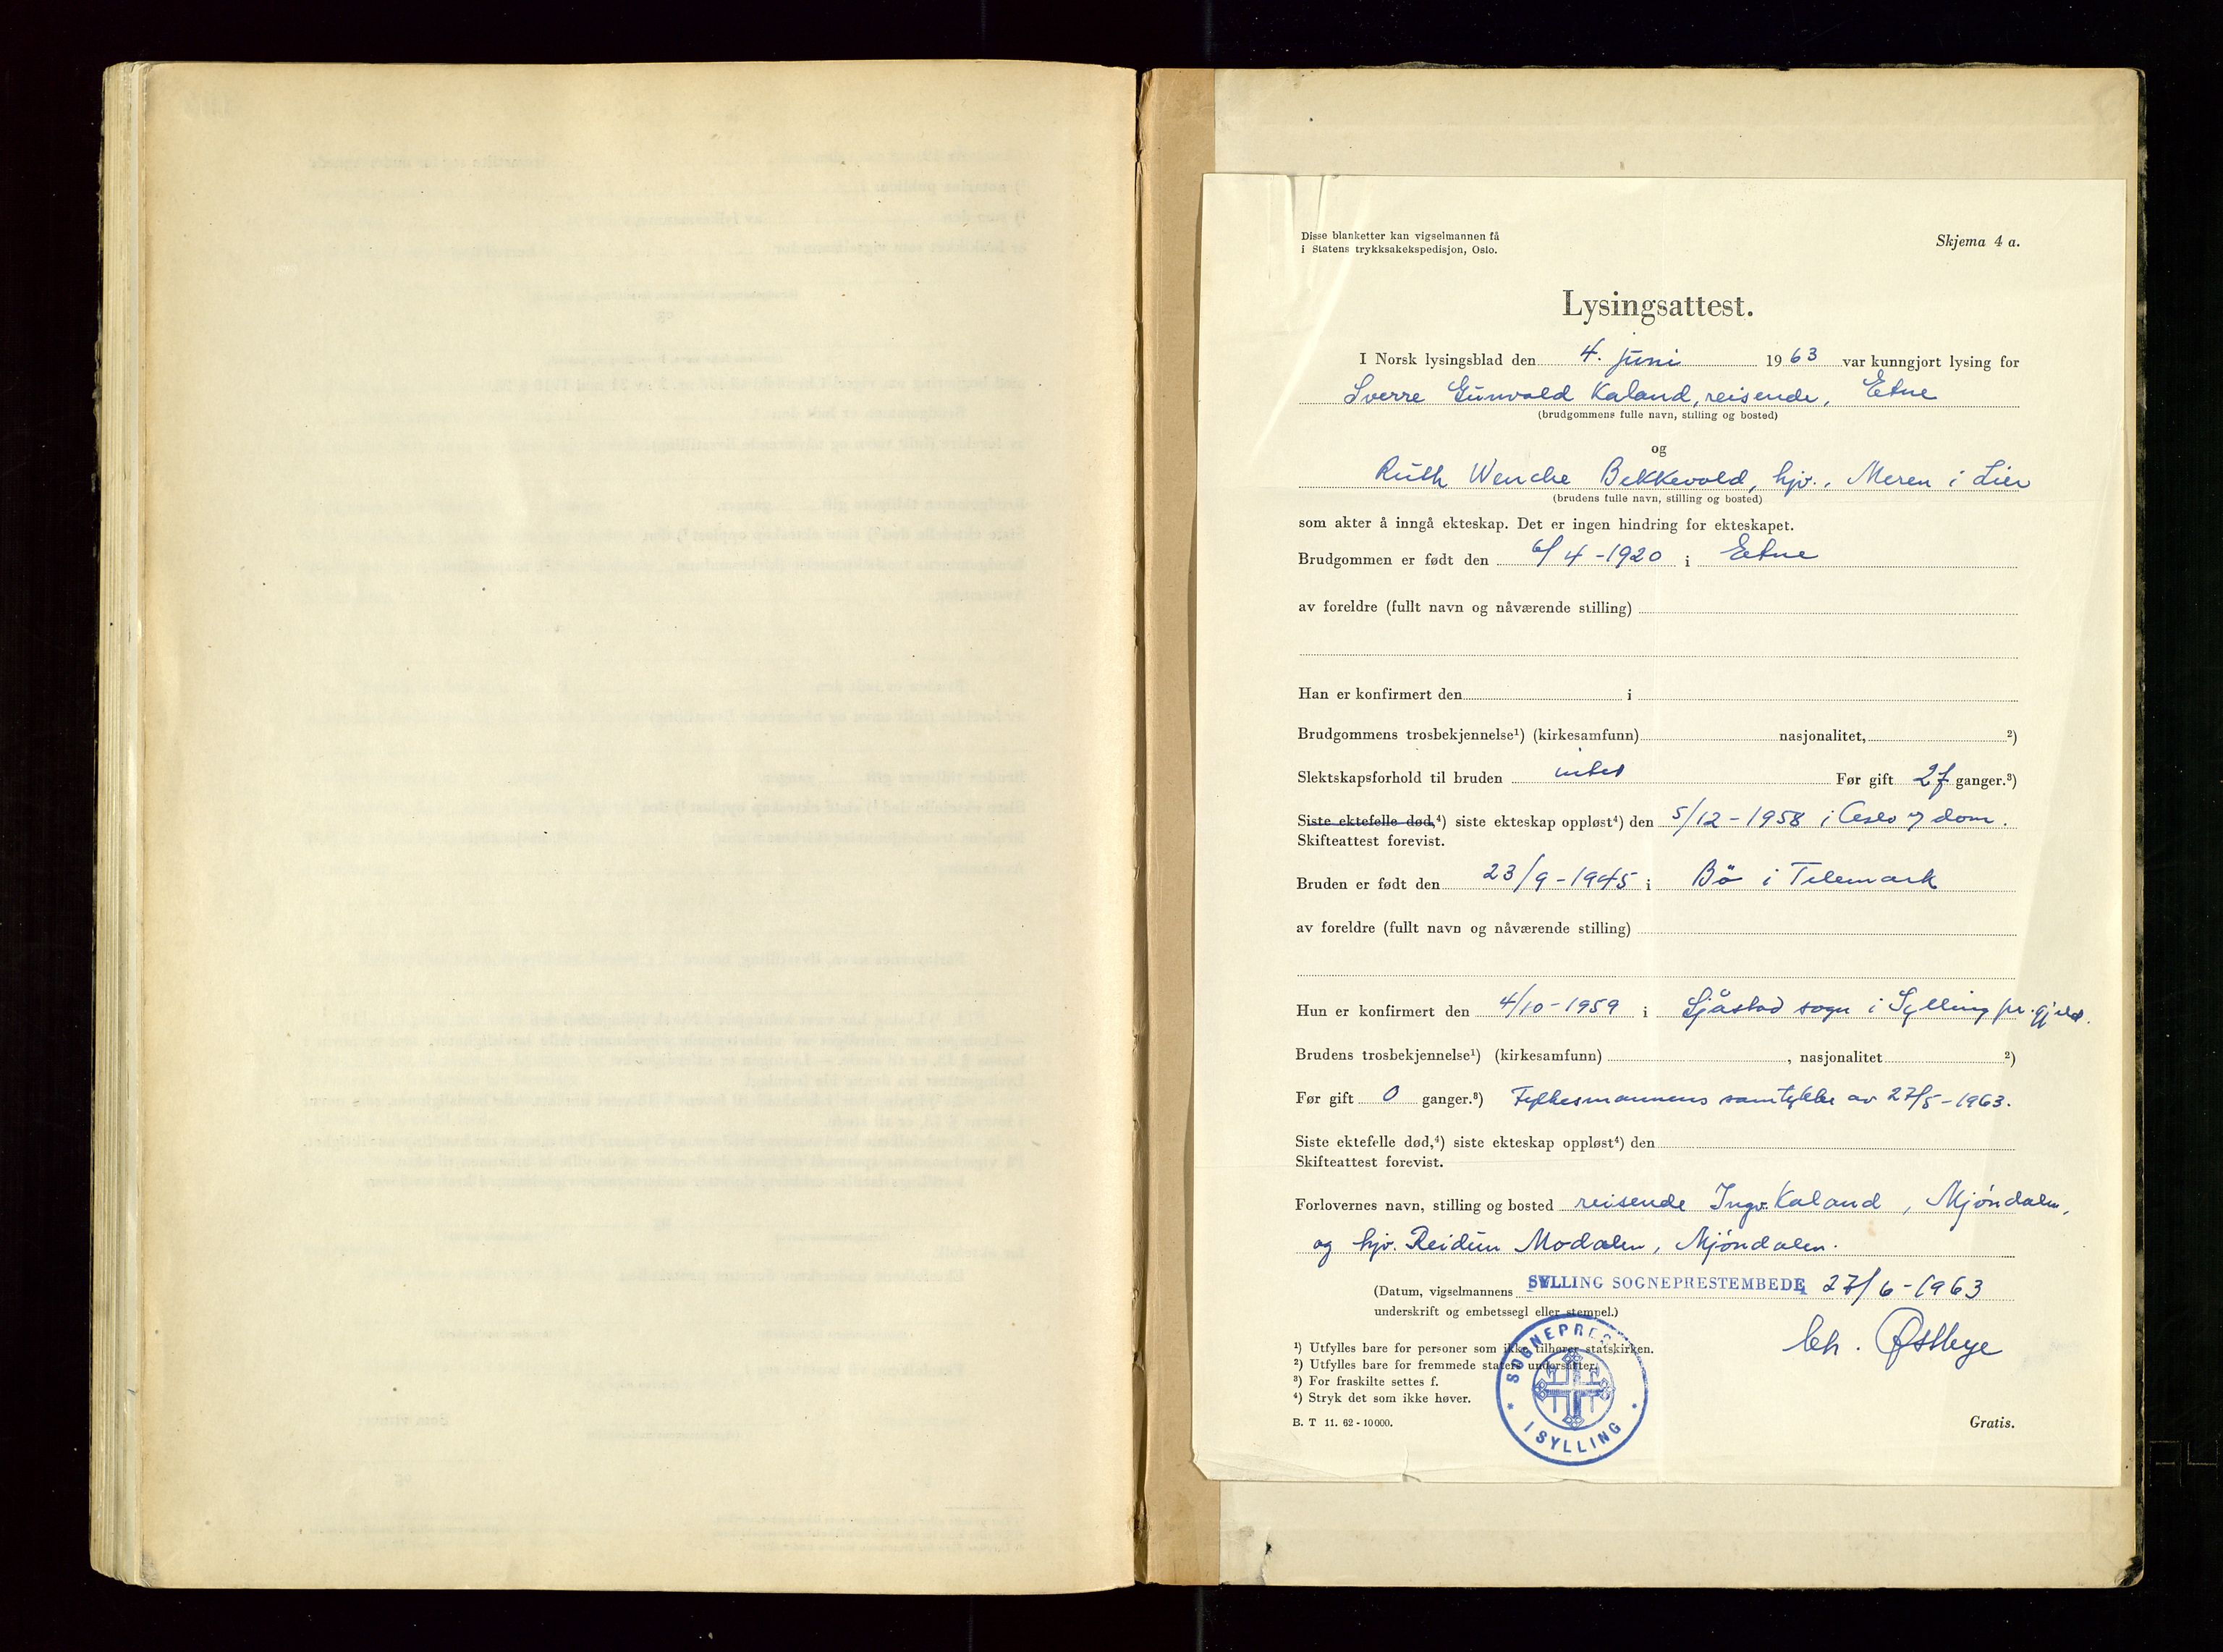 Disse blanketter kan vigselmannen få
i Statens trykksakekspedisjon, Oslo.
Skjema 4 a.
Lysingsattest.
I Norsk lysingsblad den 4. juni 1963 var kunngjort lysing for
Sverre Gunvald Kaland, reisende, Etne
(brudgommens fulle navn, stilling og bosted)
og
Ruth Wenche Bekkevold, hjv., Meren i Lier
(brudens fulle navn, stilling og bosted)
som akter å inngå ekteskap. Det er ingen hindring for ekteskapet.
Brudgommen er født den 6/4 - 1920 i Etne
av foreldre (fullt navn og nåværende stilling)
Han er konfirmert den i
Brudgommens trosbekjennelse¹) (kirkesamfunn) nasjonalitet, ²)
Slektskapsforhold til bruden intet Før gift 2f ganger.³)
Siste ektefelle død,⁴) siste ekteskap oppløst⁴) den 5/12 - 1958 i Oslo v dom.
Skifteattest forevist.
Bruden er født den 23/9 - 1945 i Bö i Telemark
av foreldre (fullt navn og nåværende stilling)
Hun er konfirmert den 4/10 - 1959 i Sjåstad sogn i Sylling pr.gjeld.
Brudens trosbekjennelse¹) (kirkesamfunn) , nasjonalitet ²)
Før gift 0 ganger.³) Fylkesmannens samtykke av 27/5 - 1963.
Siste ektefelle død,⁴) siste ekteskap oppløst⁴) den
Skifteattest forevist.
Forlovernes navn, stilling og bosted reisende Ingv. Kaland, Mjöndalen,
og hjv. Reidun Modalen, Mjöndalen.
(Datum, vigselmannens SYLLING SOGNEPRESTEMBEDE, 27/6 - 1963
underskrift og embetssegl eller stempel.)
Østbye
¹) Utfylles bare for personer som ikke tilhører statskirken.
²) Utfylles bare for fremmede staters undersåtter.
³) For fraskilte settes f.
⁴) Stryk det som ikke høver.
SOGNEPRESTEN I SYLLING
B. T 11. 62 - 10 000.
Gratis.